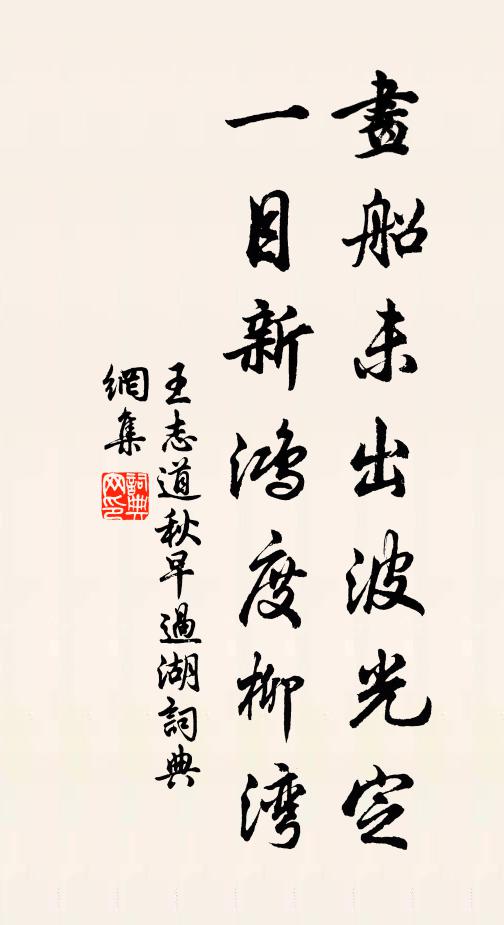 畫船未出波光定
一目新鴻度柳灣
王志道秋早過湖詞典
網集
詞典
网印